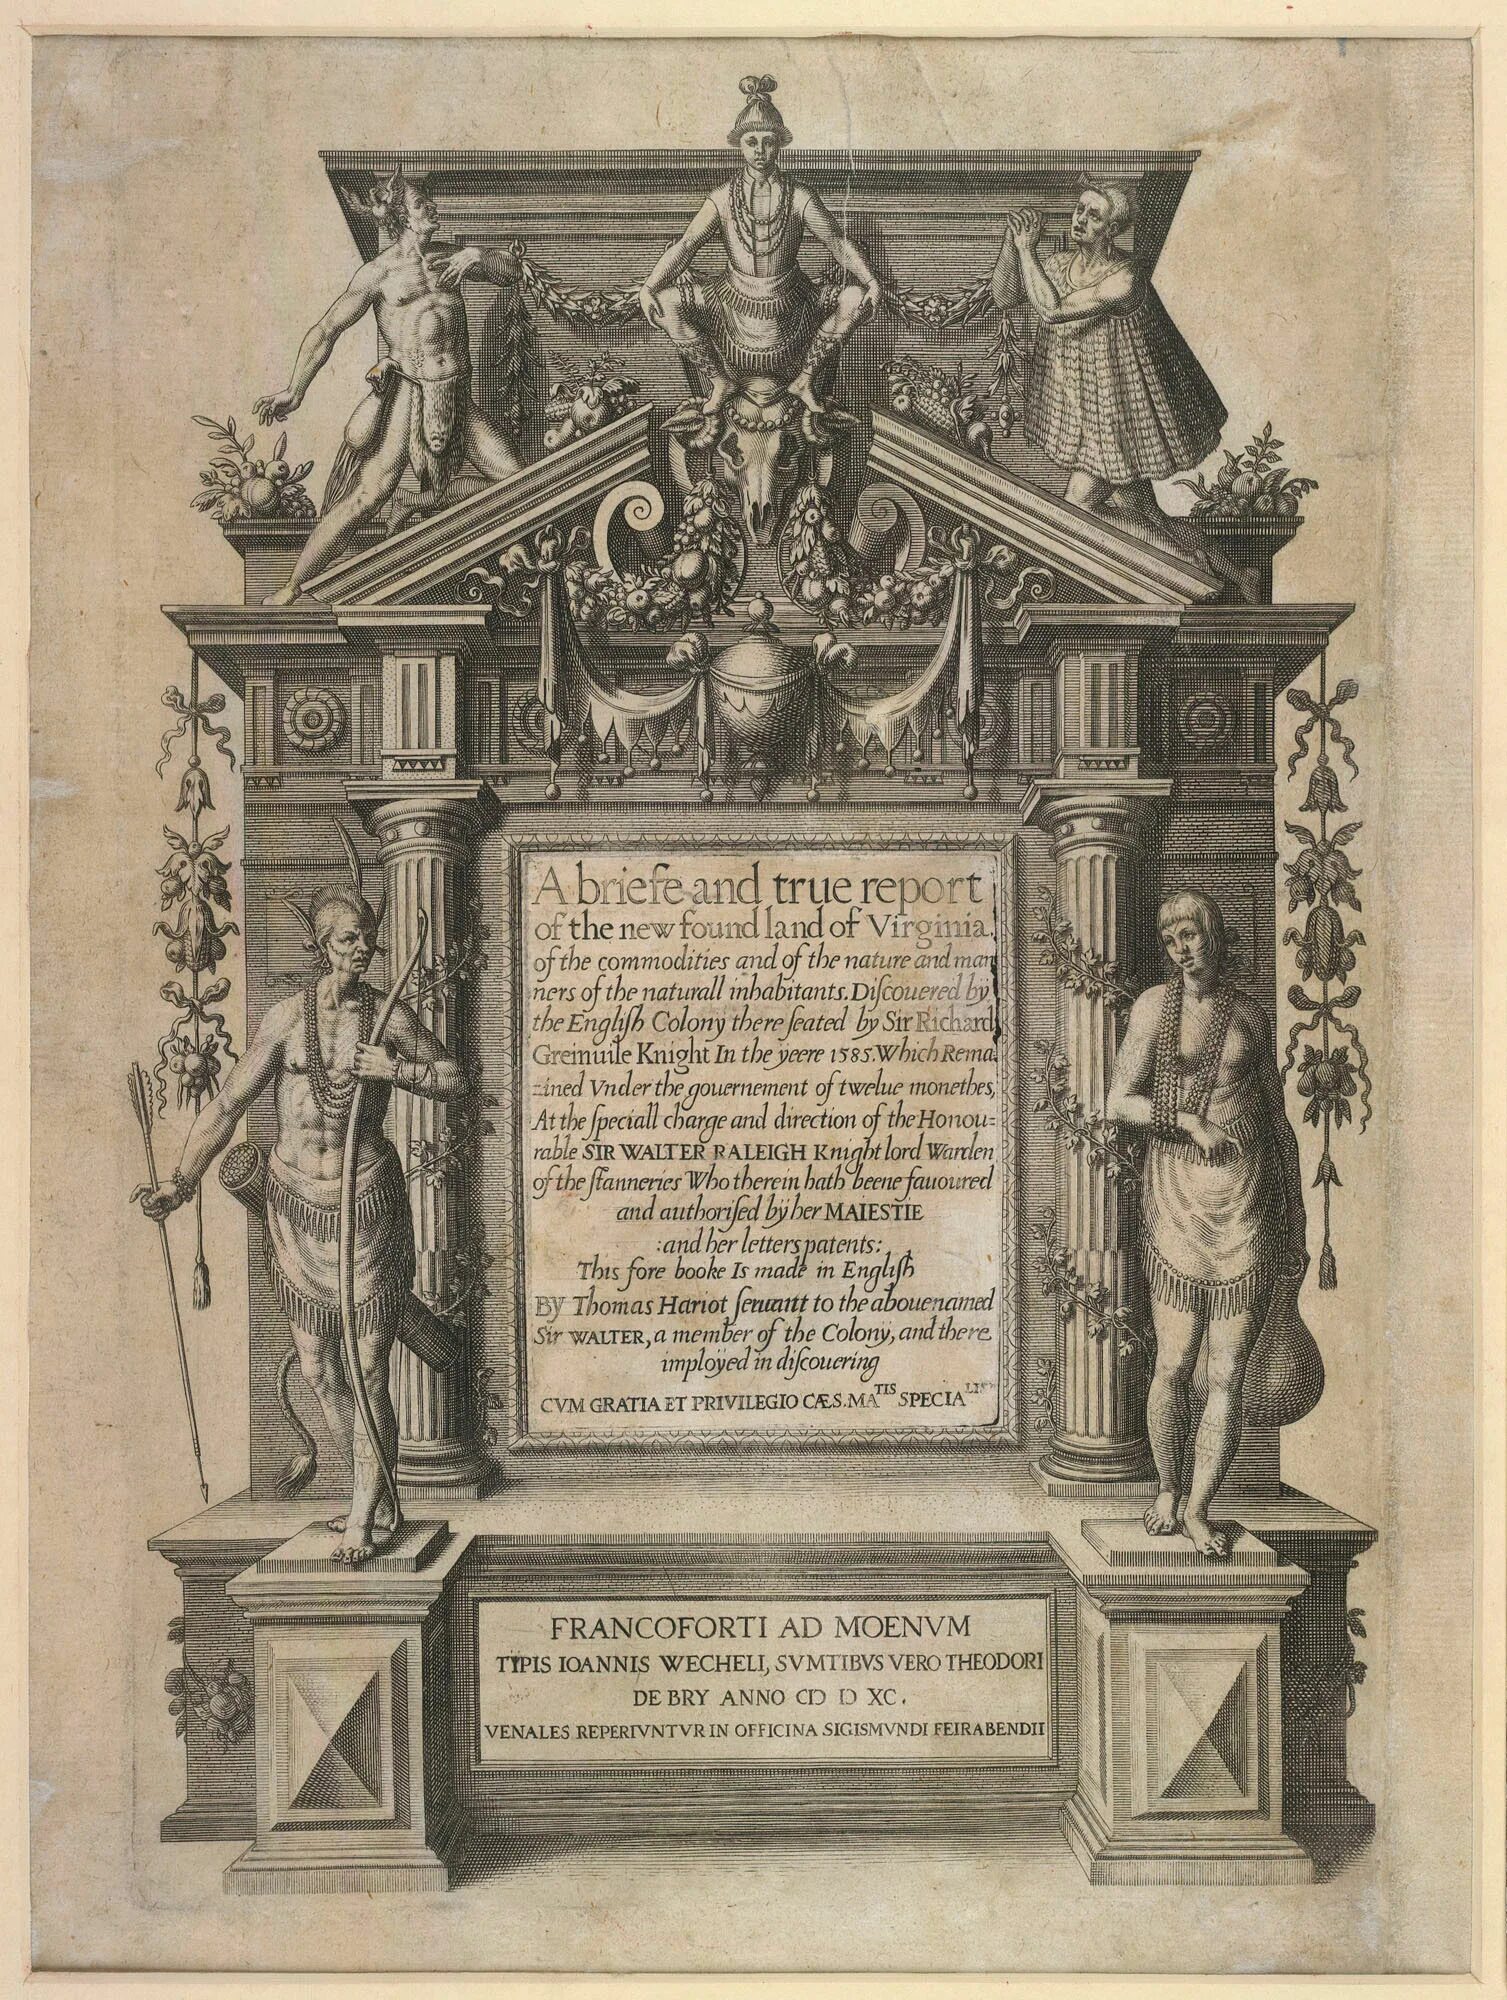 A briefe and true report
of the new found land of Virginia.
of the commodities and of the nature and man
ners of the naturall inhabitants. Diſcouered by
the Engliſh Colony there ſeated by Sir Richard
Greinuile Knight In the yeere 1585. Which Rema-
ined Vnder the gouernement of twelue monethes,
At the ſpeciall charge and direction of the Honou-
rable SIR WALTER RALEIGH Knight lord Warden
of the ſtanneries Who therein hath beene fauoured
and authoriſed by her MAIESTIE
:and her letters patents:
This fore booke Is made in Engliſh
By Thomas Hariot ſeruant to the abouenamed
Sir WALTER, a member of the Colony, and there
imployed in diſcouering
CVM GRATIA ET PRIVILEGIO CÆS. MATIS SPECIALI
FRANCOFORTI AD MOENVM
TYPIS IOANNIS WECHELI, SVMTIBVS VERO THEODORI
DE BRY ANNO CIƆ IƆ XC.
VENALES REPERIVNTVR IN OFFICINA SIGISMVNDI FEIRABENDII